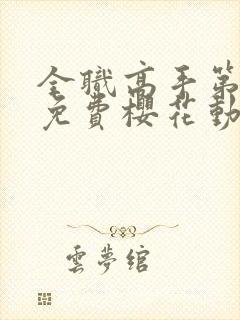 全職高手第
免費櫻花動
雲夢綰